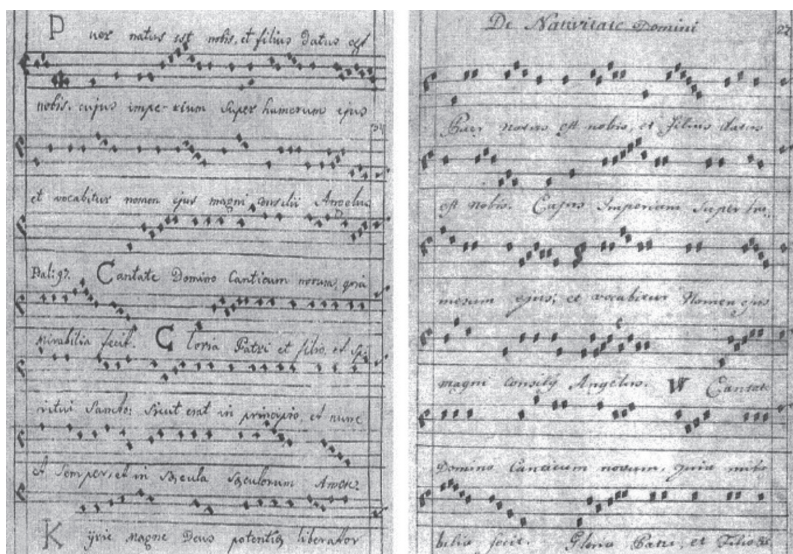 Puer natus est nobis, et filius datus est
nobis. cujus impe-rium super humerum ejus
et vocabitur nomen ejus magni consilii Angelus
Psal: 97. Cantate Domino Canticum novum, quia
mirabilia fecit. Gloria Patri et filio, et Spi
ritui Sancto: Sicut erat in principio, et nunc
et Semper, et in Sæcula Sæculorum Amen.
Kyrie magne Deus potentiæ liberator
De Nativitate Domini
Puer natus est nobis, et filius datus
est nobis. Cujus Imperium Super hu-
merum ejus, et vocabitur Nomen ejus
magni consilij Angelus. V Cantate
Domino Canticum novum, quia mira
bilia fecit. Gloria Patri, et Filio